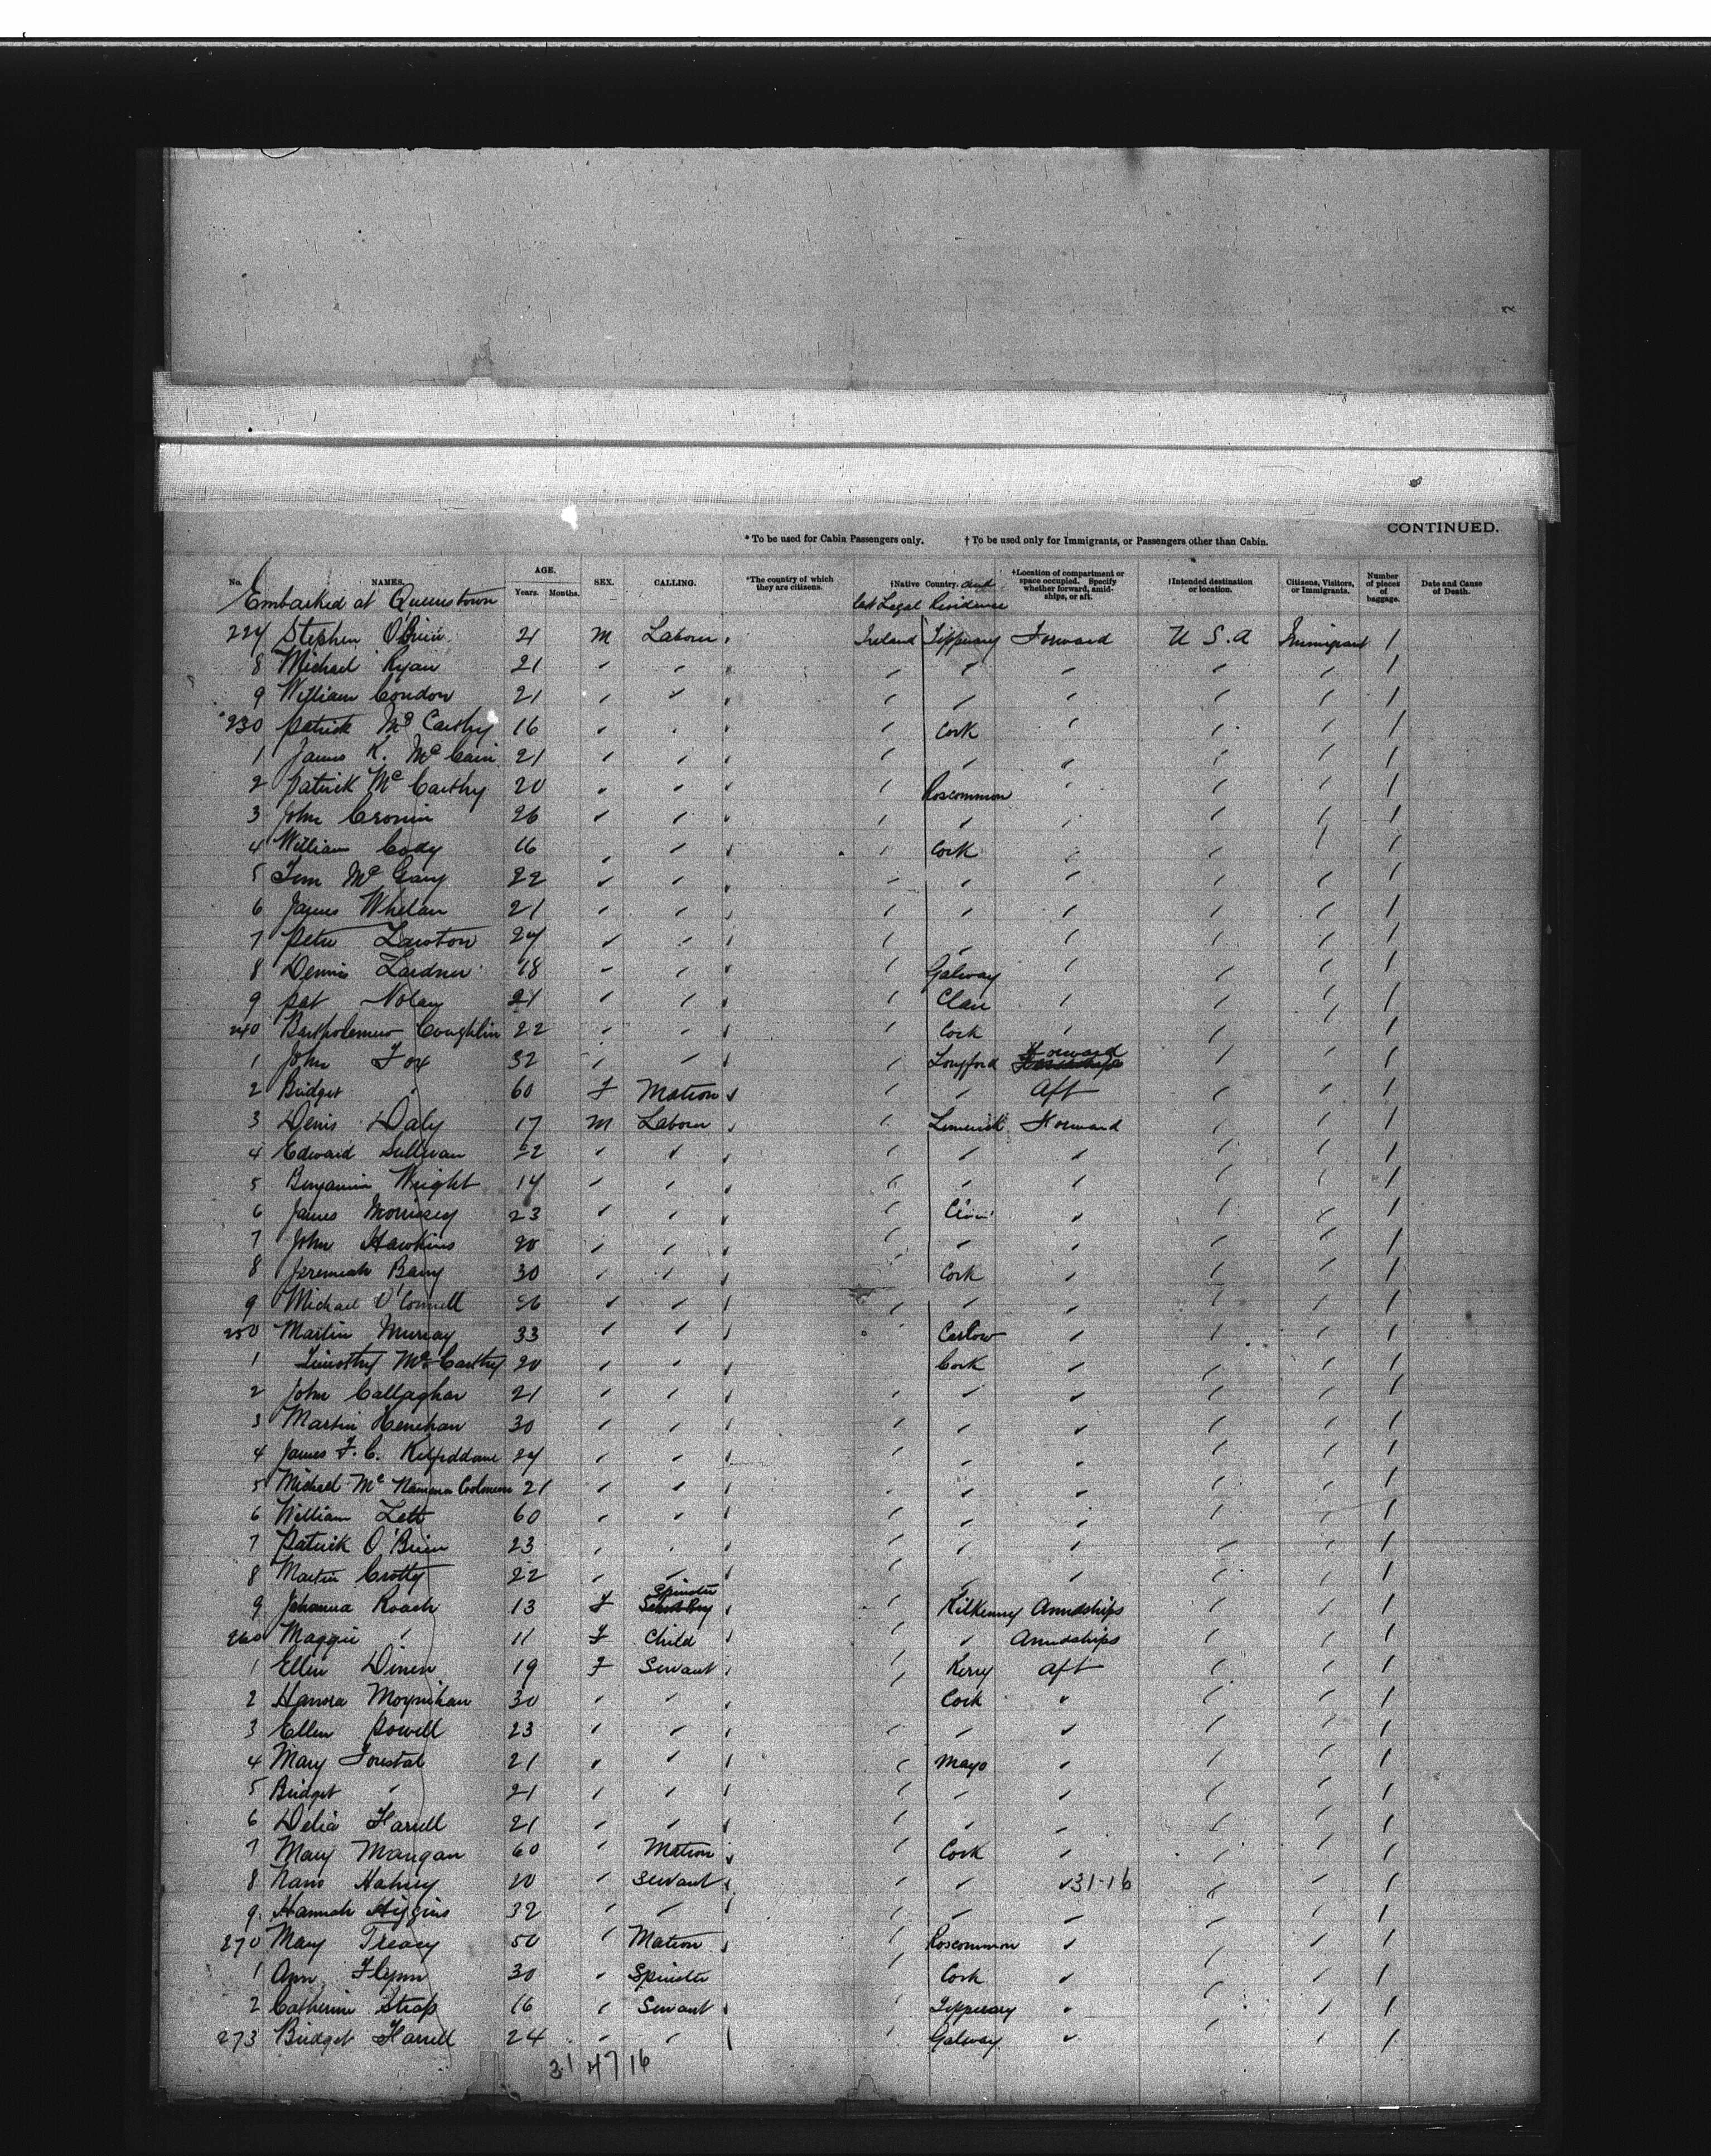 CONTINUED.
* To be used for Cabin Passengers only. † To be used only for Immigrants, or Passengers other than Cabin.
No. NAMES. AGE. Years. Months. SEX. CALLING. *The country of which they are citizens. †Native Country. and last Legal Residence †Location of compartment or space occupied. Specify whether forward, amidships, or aft. †Intended destination or location. Citizens, Visitors, or Immigrants. Number of pieces of baggage. Date and Cause of Death.
Embarked at Queenstown
227 Stephen O'Brien 21 M Laborer Ireland Tipperary Forward U S. A Immigrant 1
8 Michael Ryan 21 " " " " " " " " 1
9 William Condon 21 " " " " " " " " 1
230 Patrick Mc Carthy 16 " " " " Cork " " " 1
1 James K. Mc Cain 21 " " " " " " " " 1
2 Patrick Mc Carthy 20 " " " " Roscommon " " " 1
3 John Cronin 26 " " " " " " " " 1
4 William Cody 16 " " " " Cork " " " 1
5 Mc 22 " " " " " " " " 1
6 James Whelan 21 " " " " " " " " 1
7 Peter Lawton 24 " " " " " " " " 1
8 Dennis Lardner 18 " " " " Galway " " " 1
9 Pat Nolan 21 " " " " Clare " " " 1
240 Bartholemew Coughlin 22 " " " " Cork " " " 1
1 John Fox 32 " " " " Longford Forward " " 1
2 Bridget " 60 F Matron " " " Aft " " 1
3 Denis Daly 17 M Laborer " " Limerick Forward " " 1
4 Edward Sullivan 22 " " " " " " " " 1
5 Benjamin Wright 14 " " " " " " " " 1
6 James Morrissey 23 " " " " " " " 1
7 John Hawkins 20 " " " " " " " " 1
8 Jeremiah Barry 30 " " " " Cork " " " 1
9 Michael O'Connell 26 " " " " " " " " 1
250 Martin Murray 33 " " " " Carlow " " " 1
1 Timothy McCarthy 20 " " " " Cork " " " 1
2 John Callaghan 21 " " " " " " " " 1
3 Martin Henehan 30 " " " " " " " " 1
4 James F. C. 24 " " " " " " " " 1
5 Michael Mc Namara 21 " " " " " " " " 1
6 William Lett 60 " " " " " " " " 1
7 Patrick O'Brien 23 " " " " " " " " 1
8 Martin Crotty 22 " " " " " " " " 1
9 Johanna Roach 13 F Spinster " " Kilkenny Amidships " " 1
260 Maggie " 11 F Child " " " Amidships " " 1
1 Ellen Dineen 19 F Servant " " Kerry Aft " " 1
2 Hanora Moynihan 30 " " " " Cork " " " 1
3 Ellen Powell 23 " " " " " " " " 1
4 Mary Forstal 21 " " " " Mayo " " " 1
5 Bridget " 21 " " " " " " " " 1
6 Delia Farrell 21 " " " " " " " " 1
7 Mary Mangan 60 " Matron " " Cork " " " 1
8 20 " Servant " " " " 31-16 " " 1
9 Hannah Higgins 32 " " " " " " " " 1
270 Mary Treacy 50 " Matron " " Roscommon " " " 1
1 Ann Flynn 30 " Spinster " Cork " " " 1
2 Catherine Strap 16 " Servant " " Tipperary " " " 1
273 Bridget Farrell 24 " " " " Galway " " " 1
31 47 16